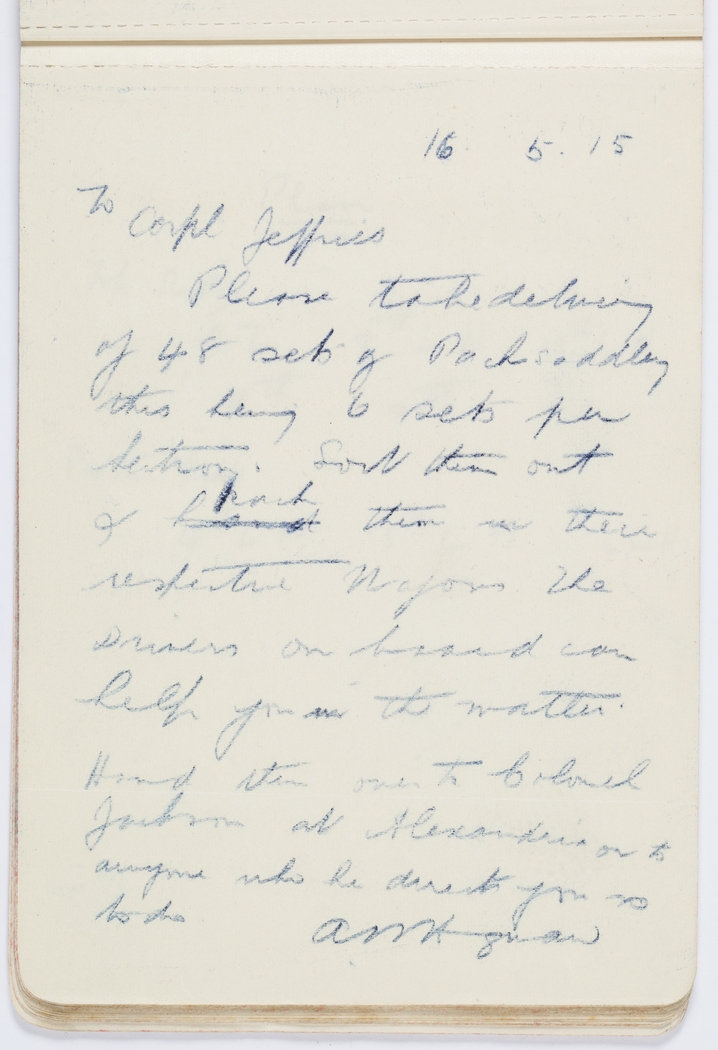 16 5. 15
To Corpl Jeffries
Please take delivery
of 48 sets of Packsaddley
this being 6 sets per
section. Sort them out
pack
& hand them in their
respective Wagons The
Drivers on board can
help you in the matter.
Hand them over to Colonel
Jackson at Alexandria or to
anyone who he directs you so
to do